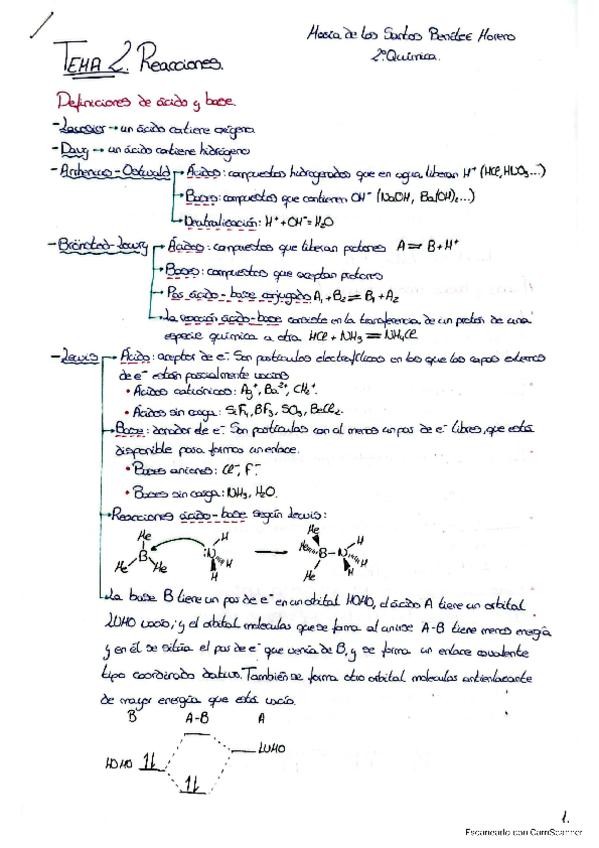 María de los Santos Benítez Moreno
2º Química.
TEMA 2. Reacciones.
Definiciones de ácido y base.
- Lavoisier → un ácido contiene oxígeno
- Davy → un ácido contiene hidrógeno
- Arrhenius-Ostwald → Ácidos: compuestos hidrogenados que en agua liberan H⁺ (HCl, HNO₃...)
→ Bases: compuestos que contienen OH⁻ (NaOH, Ba(OH)₂...)
→ Neutralización: H⁺ + OH⁻ = H₂O
- Brönsted-Lowry → Ácidos: compuestos que liberan protones A ⇌ B + H⁺
→ Bases: compuestos que aceptan protones
→ Par ácido-base conjugado A₁ + B₂ ⇌ B₁ + A₂
→ La reacción ácido-base consiste en la transferencia de un protón de una
especie química a otra. HCl + NH₃ ⇌ NH₄Cl
- Lewis → Ácido: aceptor de e⁻. Son partículas electrofílicas en las que las capas externas
de e⁻ están parcialmente vacías
• Ácidos catiónicos: Ag⁺, Ba²⁺, CH₃⁺.
• Ácidos sin carga: SiF₄, BF₃, SO₃, BeCl₂.
→ Base: donador de e⁻. Son partículas con al menos un par de e⁻ libres, que está
disponible para formar un enlace.
• Bases aniones: Cl⁻, F⁻
• Bases sin carga: NH₃, H₂O.
→ Reacciones ácido-base según Lewis:
Me Me H
B :N H Me B - N H
Me Me H Me H
→ La base B tiene un par de e⁻ en un orbital HOMO, el ácido A tiene un orbital
LUMO vacío; y el orbital molecular que se forma al unirse A-B tiene menos energía
y en él se sitúa el par de e⁻ que venía de B, y se forma un enlace covalente
tipo coordinado dativo. También se forma otro orbital molecular antienlazante
de mayor energía que está vacío.
B A-B A
LUMO
HOMO
1.
Escaneado con CamScanner